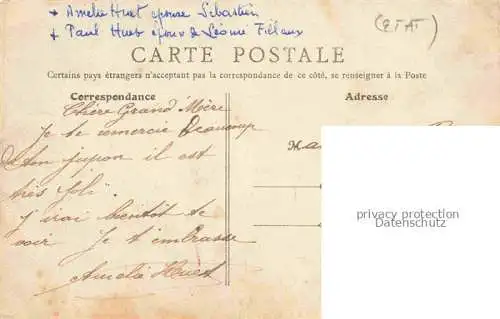 + Amelie Huet épouse Sébastien
+ Paul Huet époux de Léonie Filaux
(ETAT)
CARTE POSTALE
Certains pays étrangers n'acceptant pas la correspondance de ce côté, se renseigner à la Poste
Correspondance
Adresse
Chère Grand Mère
Je te remercie Beaucoup
de ton jupon il est
très joli.
j'irai bientôt te
voir Je t'embrasse
Amelie Huet
Ma
privacy protection
Datenschutz